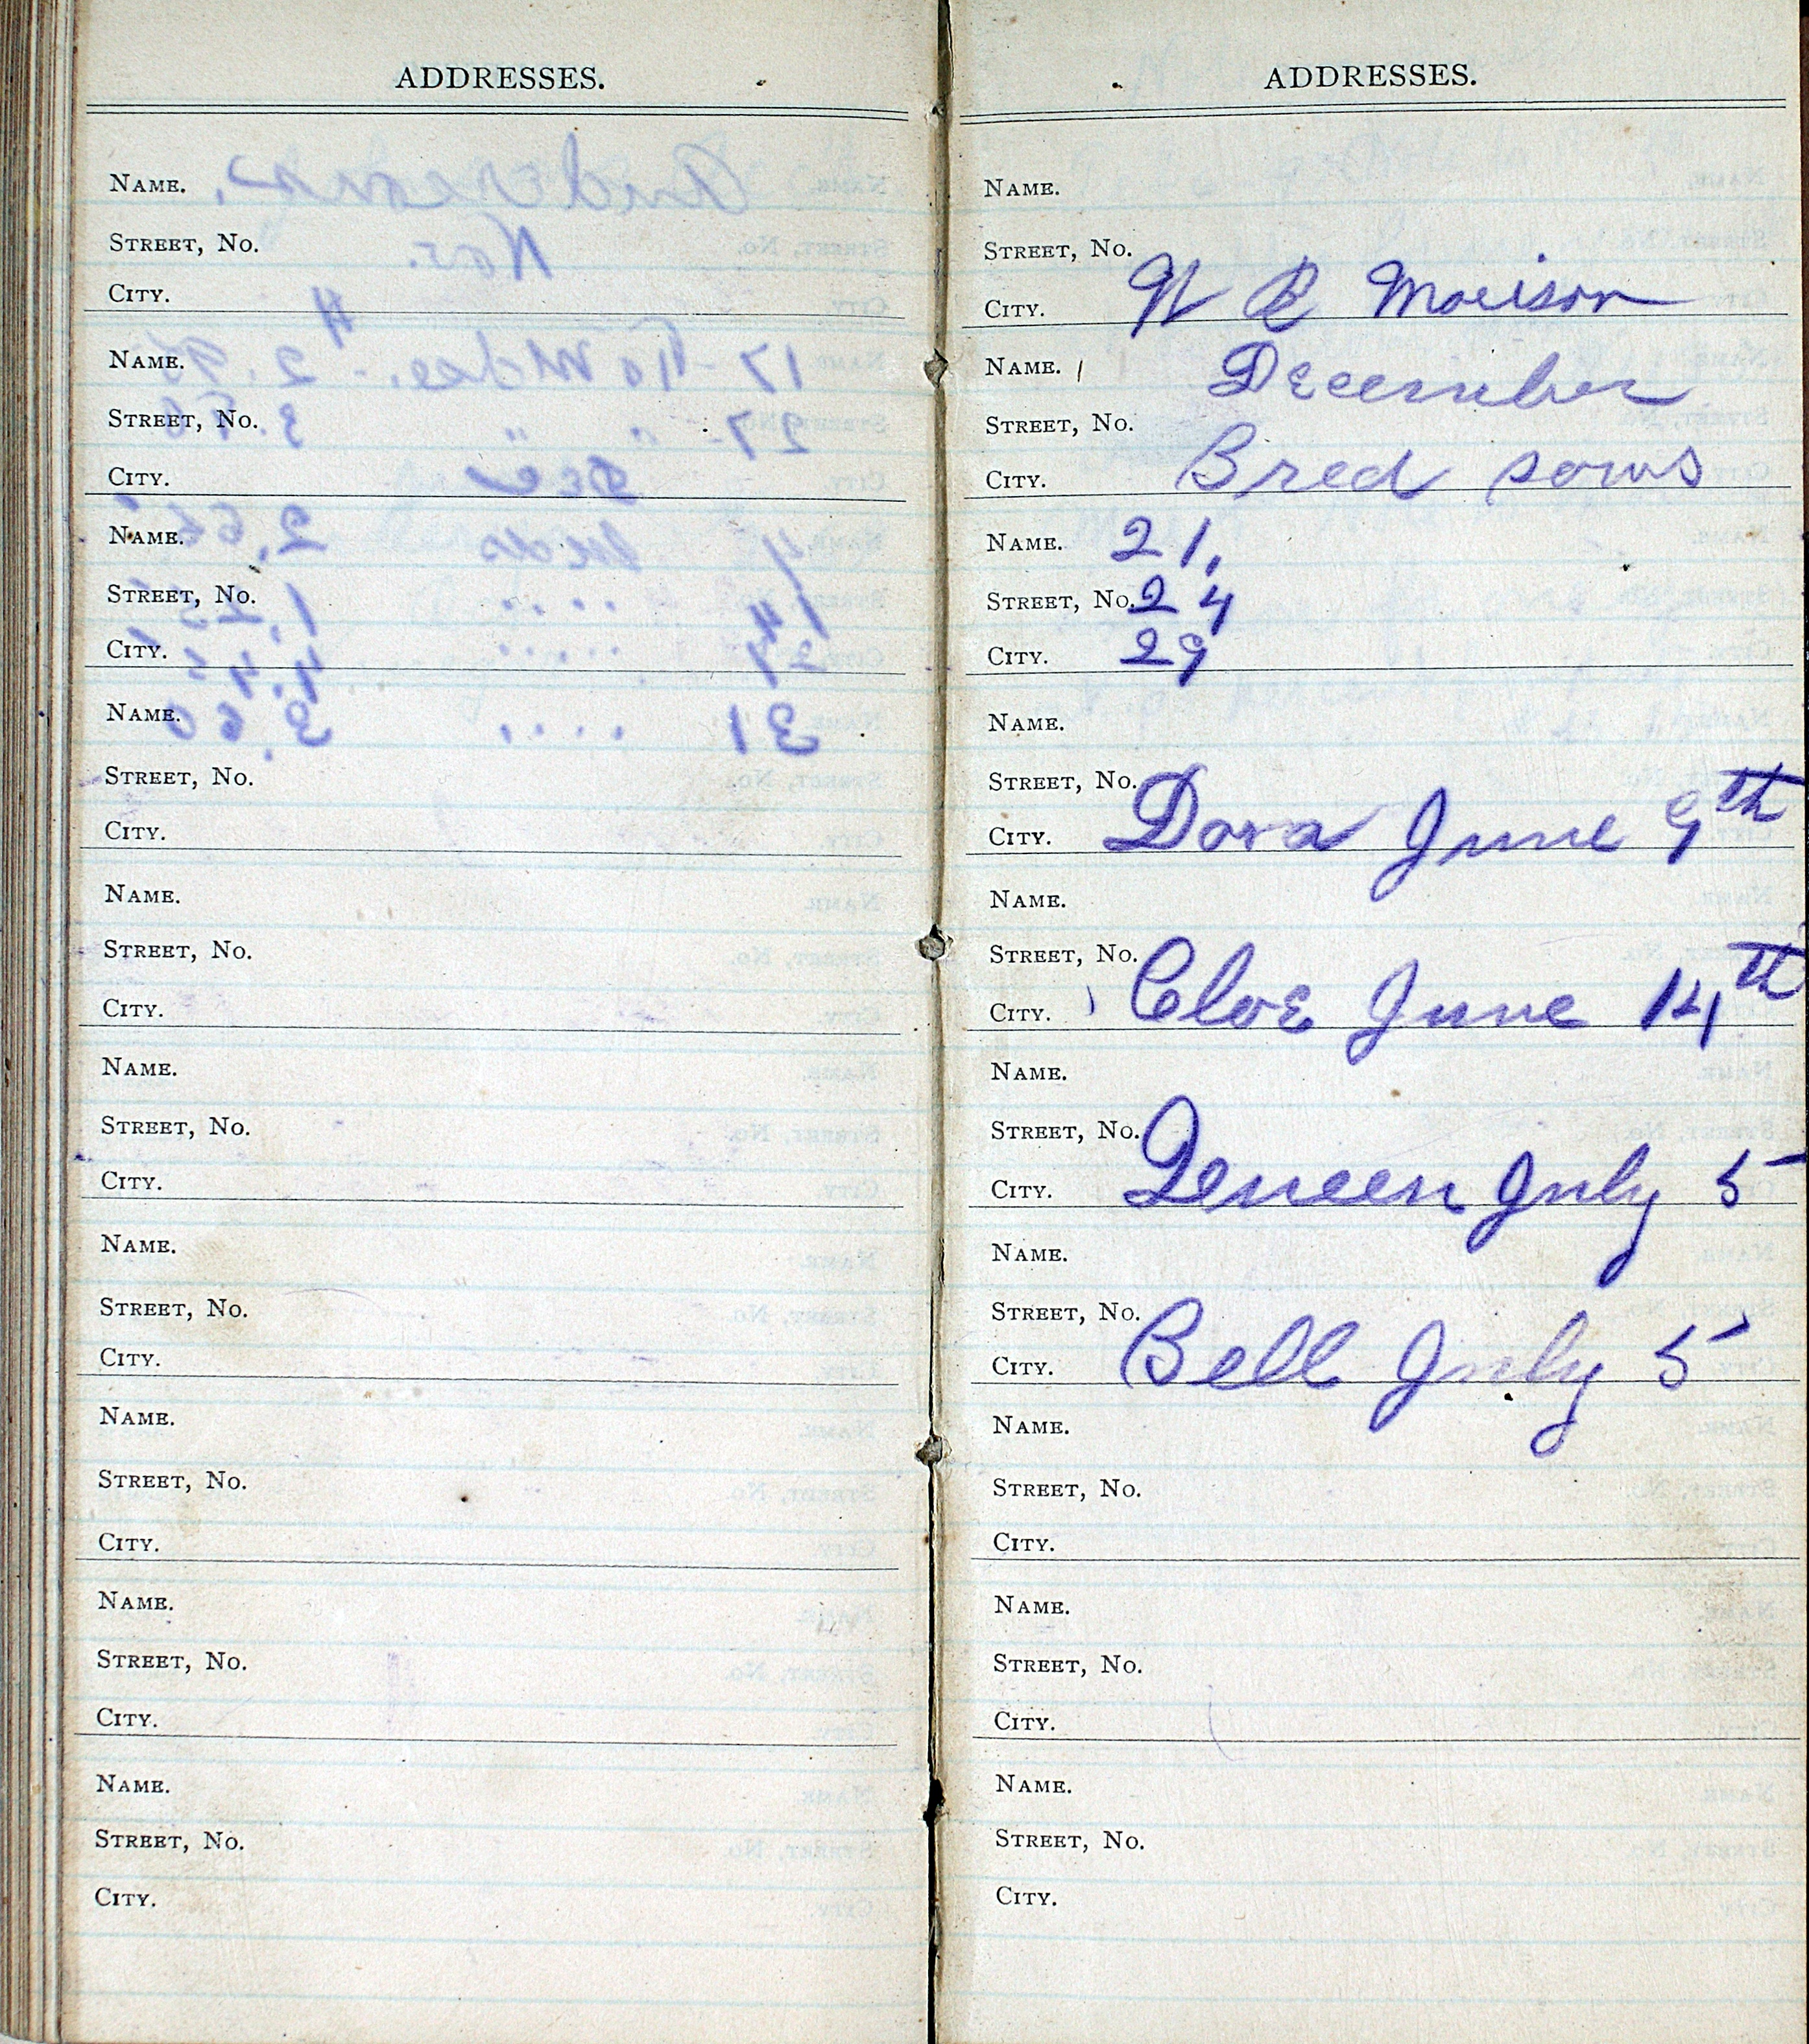 ADDRESSES.
NAME.
STREET, No.
CITY.
NAME.
STREET, No.
CITY.
NAME.
STREET, No.
CITY.
NAME.
STREET, No.
CITY.
NAME.
STREET, No.
CITY.
NAME.
STREET, No.
CITY.
NAME.
STREET, No.
CITY.
NAME.
STREET, No.
CITY.
NAME.
STREET, No.
CITY.
NAME.
STREET, No.
CITY.
ADDRESSES.
NAME.
STREET, No.
CITY. W R Morison
NAME. December
STREET, No.
CITY. Bred sows
NAME. 21.
STREET, No. 24
CITY. 29
NAME.
STREET, No.
CITY. Dora June 9th
NAME.
STREET, No.
CITY. Cloe June 14th
NAME.
STREET, No.
CITY. Deneen July 5
NAME.
STREET, No.
CITY. Bell July 5
NAME.
STREET, No.
CITY.
NAME.
STREET, No.
CITY.
NAME.
STREET, No.
CITY.